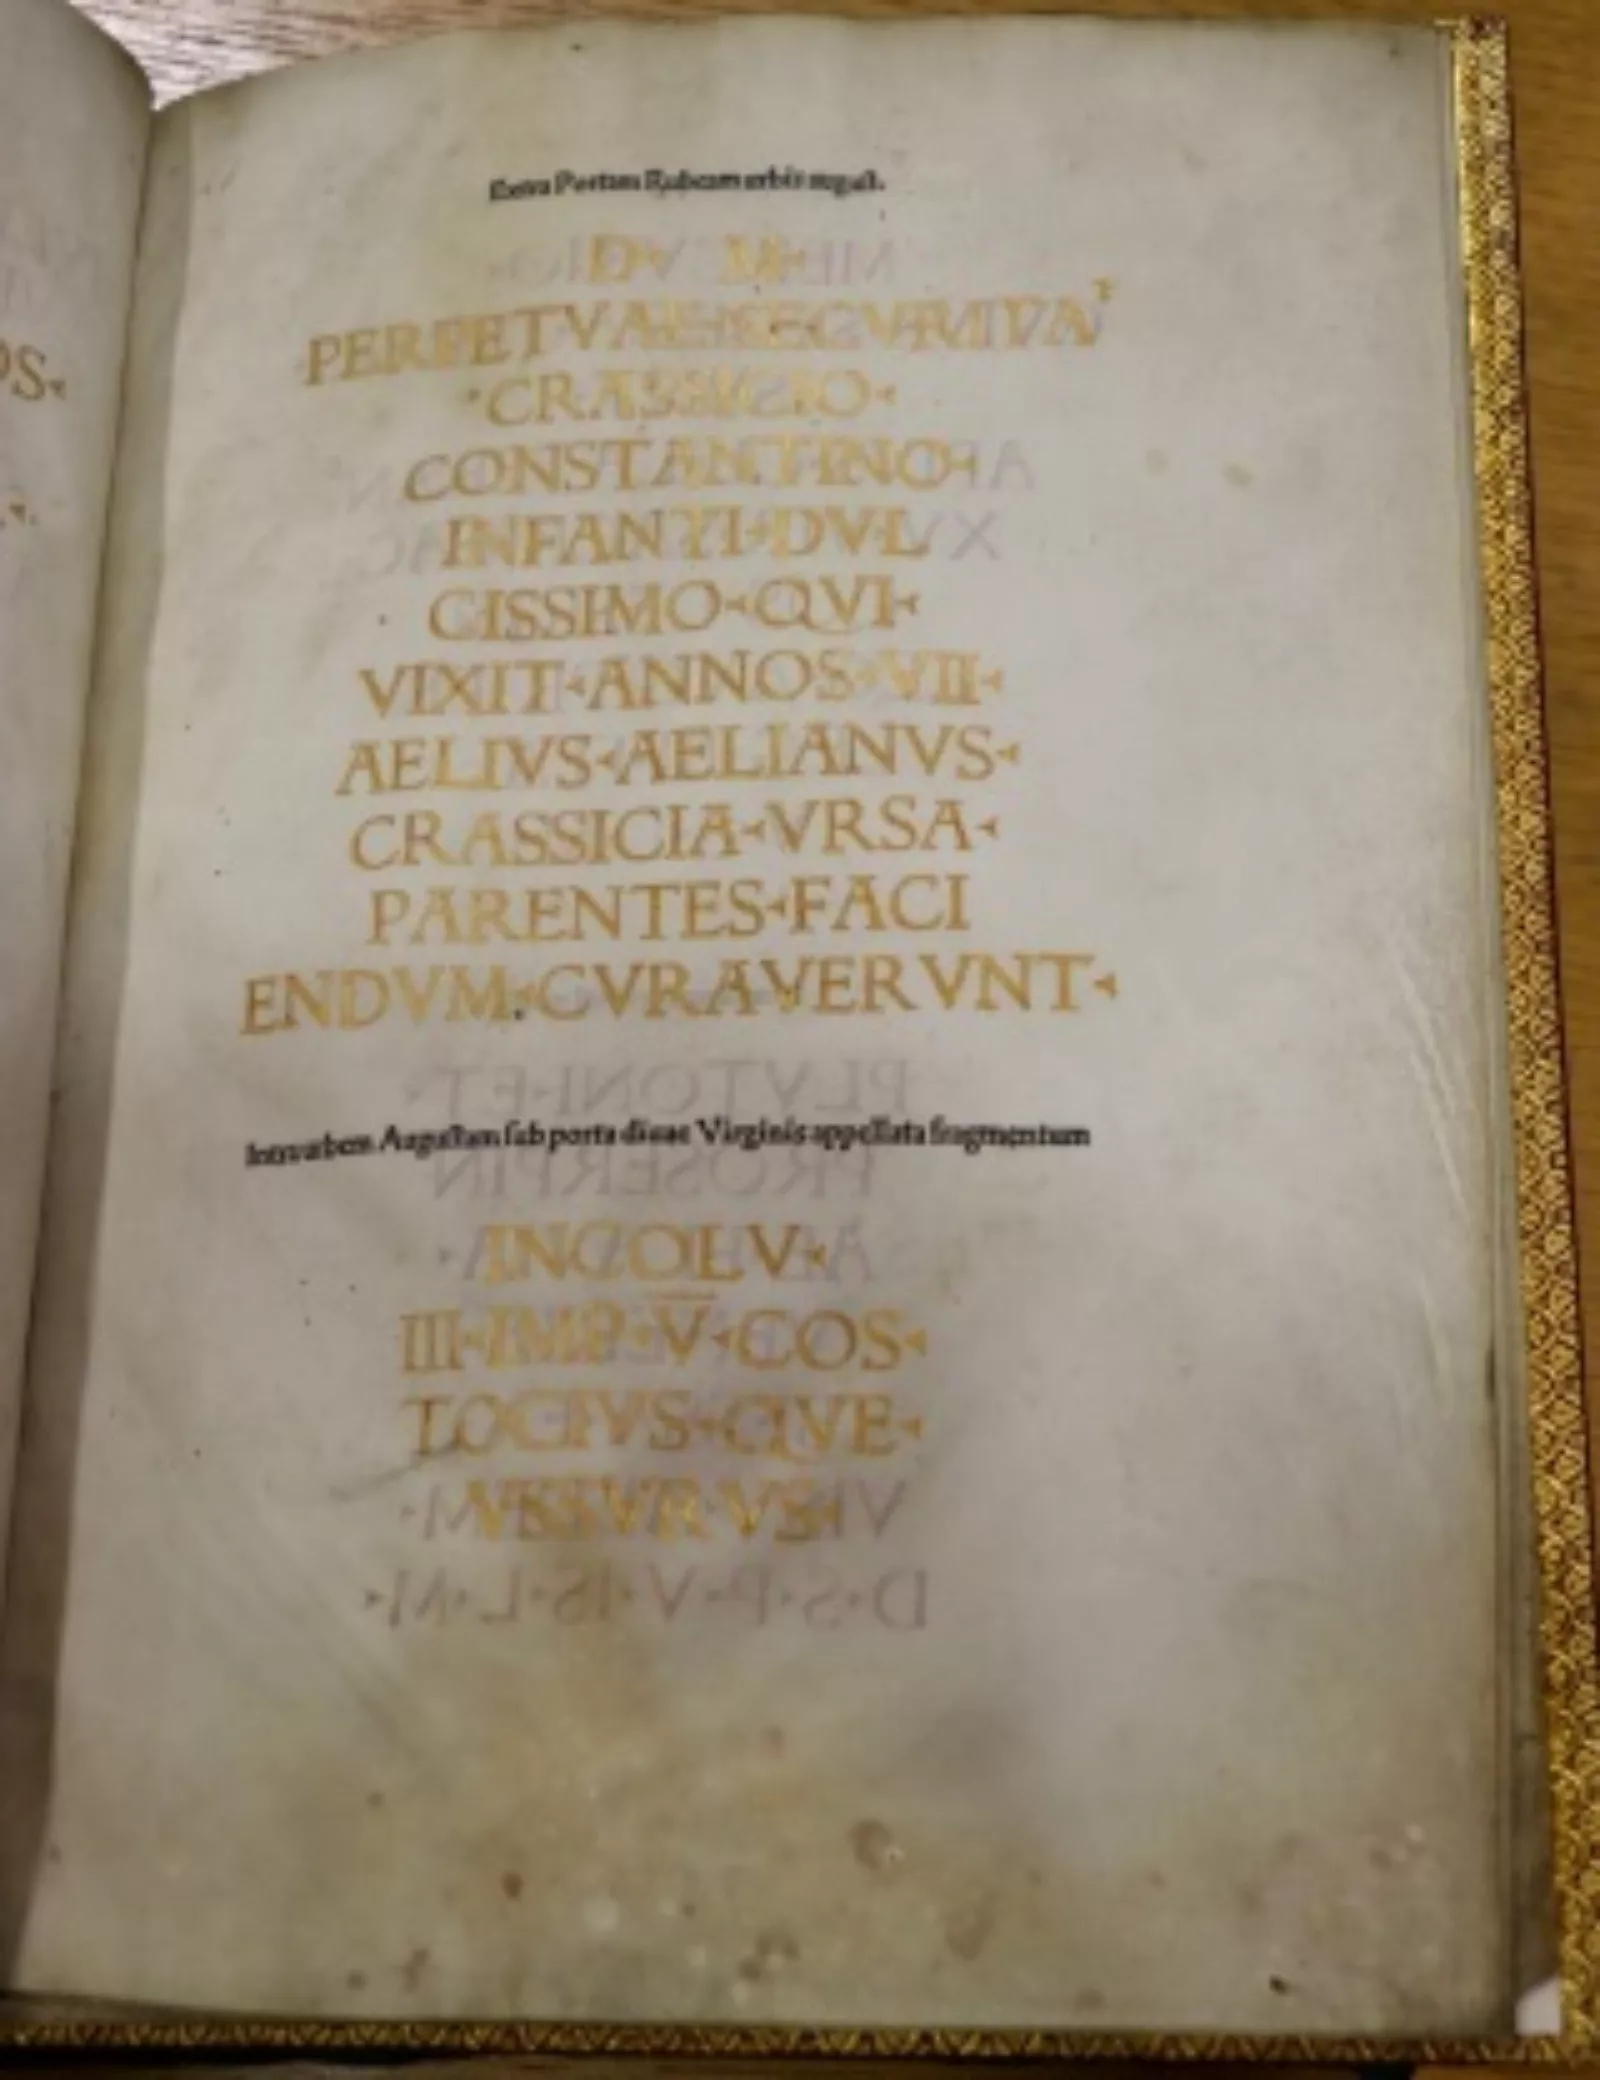 Extra Portam Rubeam urbis august.
D M
PERPETVAE SECVRITA
CRASSICIO
CONSTANTINO
INFANTI DVL
CISSIMO QVI
VIXIT ANNOS VII
AELIVS AELIANVS
CRASSICIA VRSA
PARENTES FACI
ENDVM CVRAVERVNT
Intra urbem Augustam sub porta divae Virginis appellata fragmentum
INCOLV
III IMP V̅ COS
QVE
OS